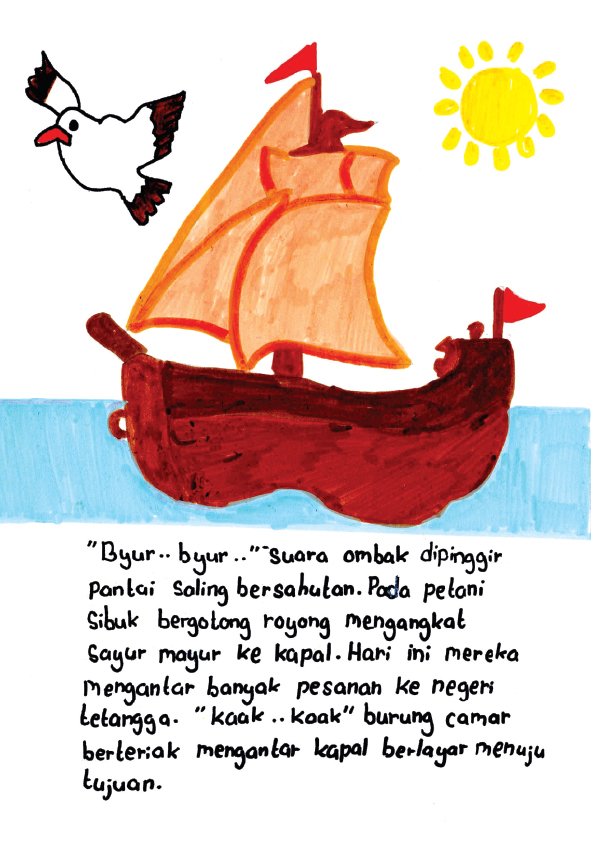 "Byur.. byur.." suara ombak dipinggir
pantai saling bersahutan. Pada petani
sibuk bergotong royong mengangkat
sayur mayur ke kapal. Hari ini mereka
mengantar banyak pesanan ke negeri
tetangga. "kaak .. koak" burung camar
berteriak mengantar kapal berlayar menuju
tujuan.